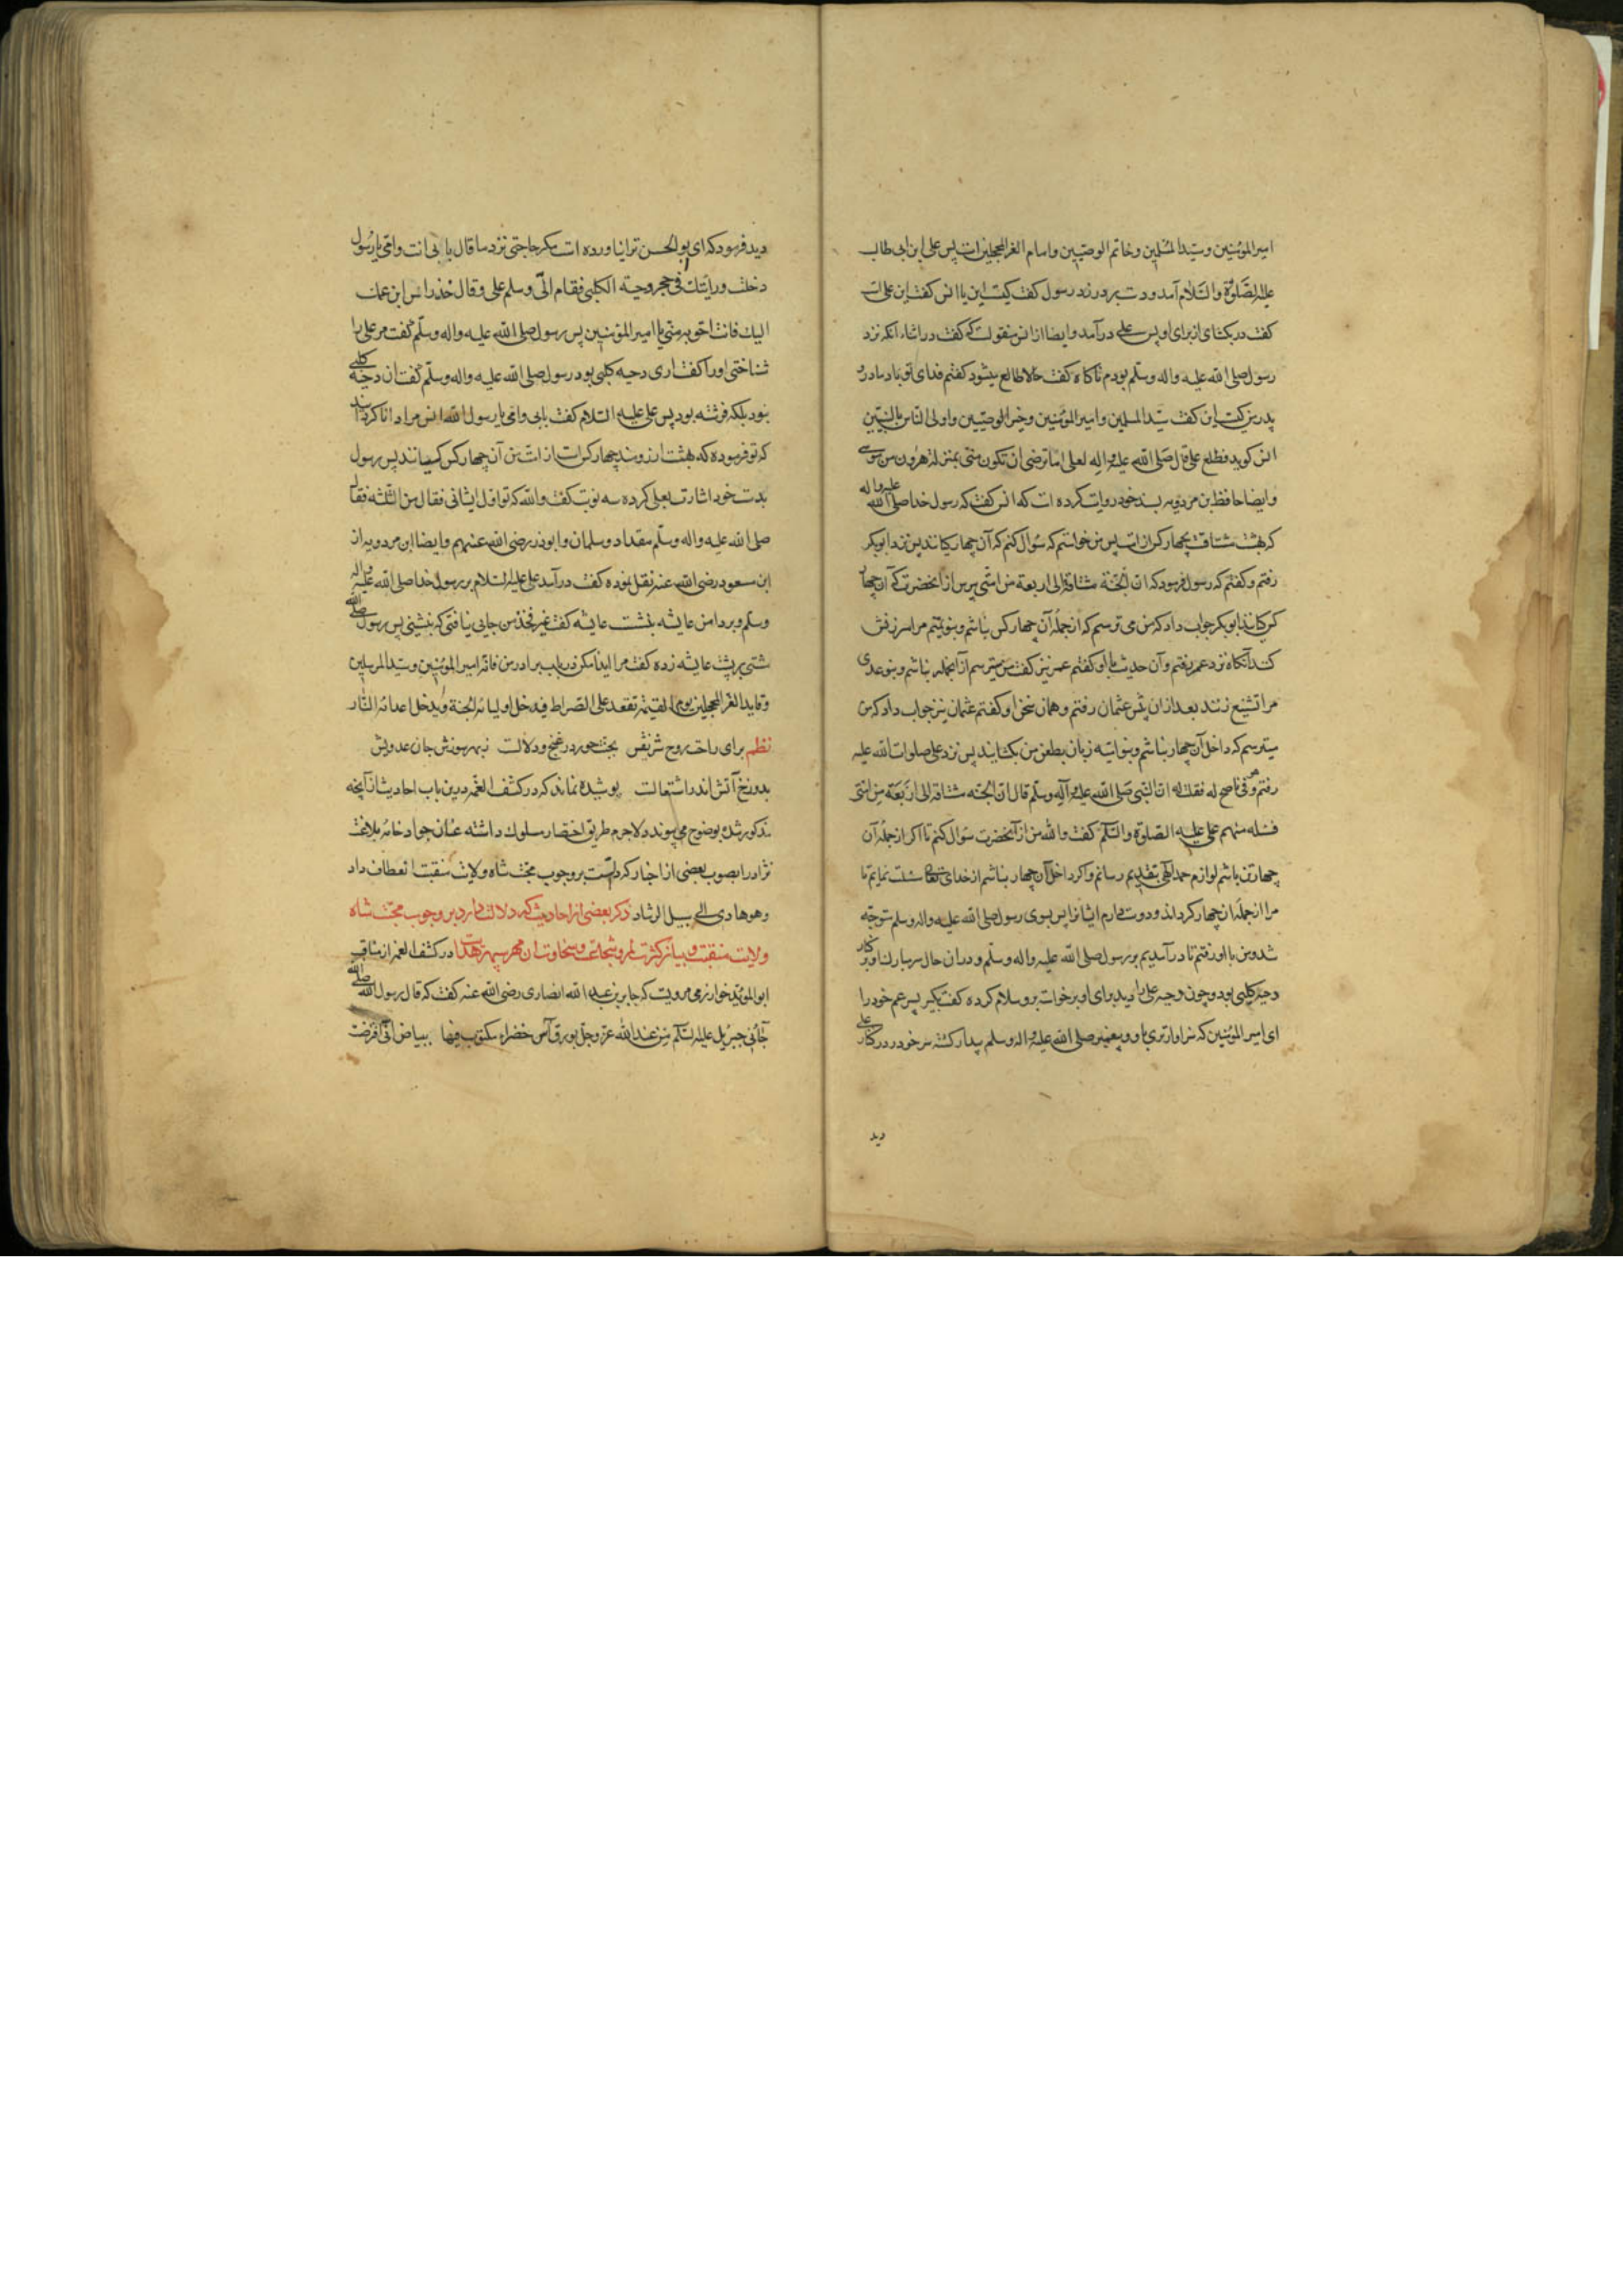 امیرالمؤمنین وسیدالمسلمین وخاتم الوصیین وامام الغرالمحجلین است پس علی ابن ابی طالب
علیه الصلوة والسلام آمد ودست بر در زد رسول کفت کیست این یا انس کفت این علی است
کفت در بکشای از برای او پس علی درآمد وایضا از انس منقولست که کفت در اثناء آنکه نزد
رسول صلی الله علیه واله وسلم بودم ناکاه کفت حالا طالع میشود کفتم فدای تو باد مادر و
پدر من کیست این کفت سید المسلمین وامیرالمؤمنین وخیرالوصیین واولی الناس بالنبیین
انس کوید فطلع علی قال صلی الله علیه واله لعلی اما ترضی ان تکون منی بمنزلة هرون من موسی
وایضا حافظ بن مردویه بسند خود روایت کرده است که انس کفت که رسول خدا صلی الله علیه واله
که بهشت مشتاقست بچهار کس از امت پس من خواستم که سؤال کنم که آن چهار کیانند پس نزد ابوبکر
رفتم وکفتم که رسول فرمود که ان الجنة مشتاقة الی اربعة من امتی بپرس از آنحضرت که آن چهار
کس کیانند ابوبکر جواب داد که من می ترسم که از جمله آن چهار کس نباشم وبنو تیم مرا سرزنش
کنند آنکاه نزد عمر رفتم وآن حدیث با او کفتم عمر نیز کفت من میترسم از آنجمله نباشم وبنو عدی
مرا تشنیع زنند بعد ازان پیش عثمان رفتم وهمان سخن با او کفتم عثمان نیز جواب داد که من
میترسم که داخل آن چهار نباشم وبنو امیه زبان بطعن من بکشایند پس نزد علی صلوات الله علیه
رفتم وهو فی ناضح له فقلت له ان النبی صلی الله علیه وآله وسلم قال ان الجنة مشتاقة الی اربعة من امتی
فسله منهم علی علیه الصلوة والسلم کفت والله من از آنحضرت سؤال کنم تا اکر از جمله آن
چهار تن باشم لوازم حمد الهی بتقدیم رسانم واکر داخل آن چهار نباشم از خدای تعالی مسئلت نمایم تا
مرا از جمله آن چهار کرداند ودوست دارم ایشانرا پس بسوی رسول صلی الله علیه واله وسلم متوجه
شد ومن با او رفتم تا درآمدیم بر رسول صلی الله علیه واله وسلم ودران حال سر مبارک او بر کنار
دحیه کلبی بود وچون دحیه علی را دید برای او برخواست بر وسلام کرده کفت بکیر پسر عم خود را
ای امیرالمؤمنین که سزاوارتری باو وپیغمبر صلی الله علیه واله وسلم بیدار کشته سر خود در کنار علی
دید
دید فرمود که ای ابوالحسن ترا نیاورده است مکر حاجتی نزد ما قال بابی انت وامی یا رسول
دخلت ورایتک فی حجر دحیة الکلبی فقام الی وسلم علی وقال خذ راس ابن عمک
الیک فانت احق به منی یا امیرالمؤمنین پس رسول صلی الله علیه واله وسلم کفت مر علی را
شناختی او را کفت اری دحیه کلبی بود رسول صلی الله علیه واله وسلم کفت ان دحیه کلبی
نبود بلکه فرشته بود پس علی علیه السلام کفت بابی وامی یا رسول الله انس مرا دانا کردانید
که تو فرموده که بهشت ارزومند چهار کس است از امت من آن چهار کس کیانند پس رسول
بدست خود اشارت بعلی کرده سه نوبت کفت والله که تو اول ایشانی فقال من الثلثه فقال
صلی الله علیه واله وسلم مقداد وسلمان وابوذر رضی الله عنهم وایضا ابن مردویه از
ابن مسعود رضی الله عنه نقل نموده کفت درآمد علی علیه السلام بر رسول خدا صلی الله علیه واله
وسلم وبر دامن عایشه بنشست عایشه کفت غیر فخذ من جایی نیافتی که بنشینی پس رسول صلی الله
مشتی بر پشت عایشه زده کفت مرا ایذا مکن در باب برادر من فانه امیرالمؤمنین وسیدالمرسلین
وقایدالغرالمحجلین یوم القیمة تقعد علی الصراط فیدخل اولیائه الجنة ویدخل اعدائه النار
نظم برای راحت روح شریفش بجنت حور در غنج ودلالت ز بهر سوزش جان عدویش
بدوزخ آتش اندر اشتعالت پوشیده نماند که در کشف الغمه درین باب احادیث از آنچه
مذکور شد بوضوح می پیوندد لاجرم طریق اختصار مسلوک داشته عنان جواد خامه بلاغت
نژاد را بصوب بعضی از اخبار که دالست بر وجوب محبت شاه ولایت منقبت انعطاف داد
وهوهادی الی سبیل الرشاد ذکر بعضی از احادیث که دلالت دارد بر وجوب محبت شاه
ولایت منقبت وبیان کثرت علم وشجاعت وسخاوت ان مهر سپهر هدایت در کشف الغمه از مناقب
ابوالموید خوارزمی مرویست که جابر بن عبد الله انصاری رضی الله عنه کفت که قال رسول الله صلی الله
جائنی جبرئیل علیه السلم من عند الله عز وجل بورق آس خضراء مکتوب فیها ببیاض انی افترضت